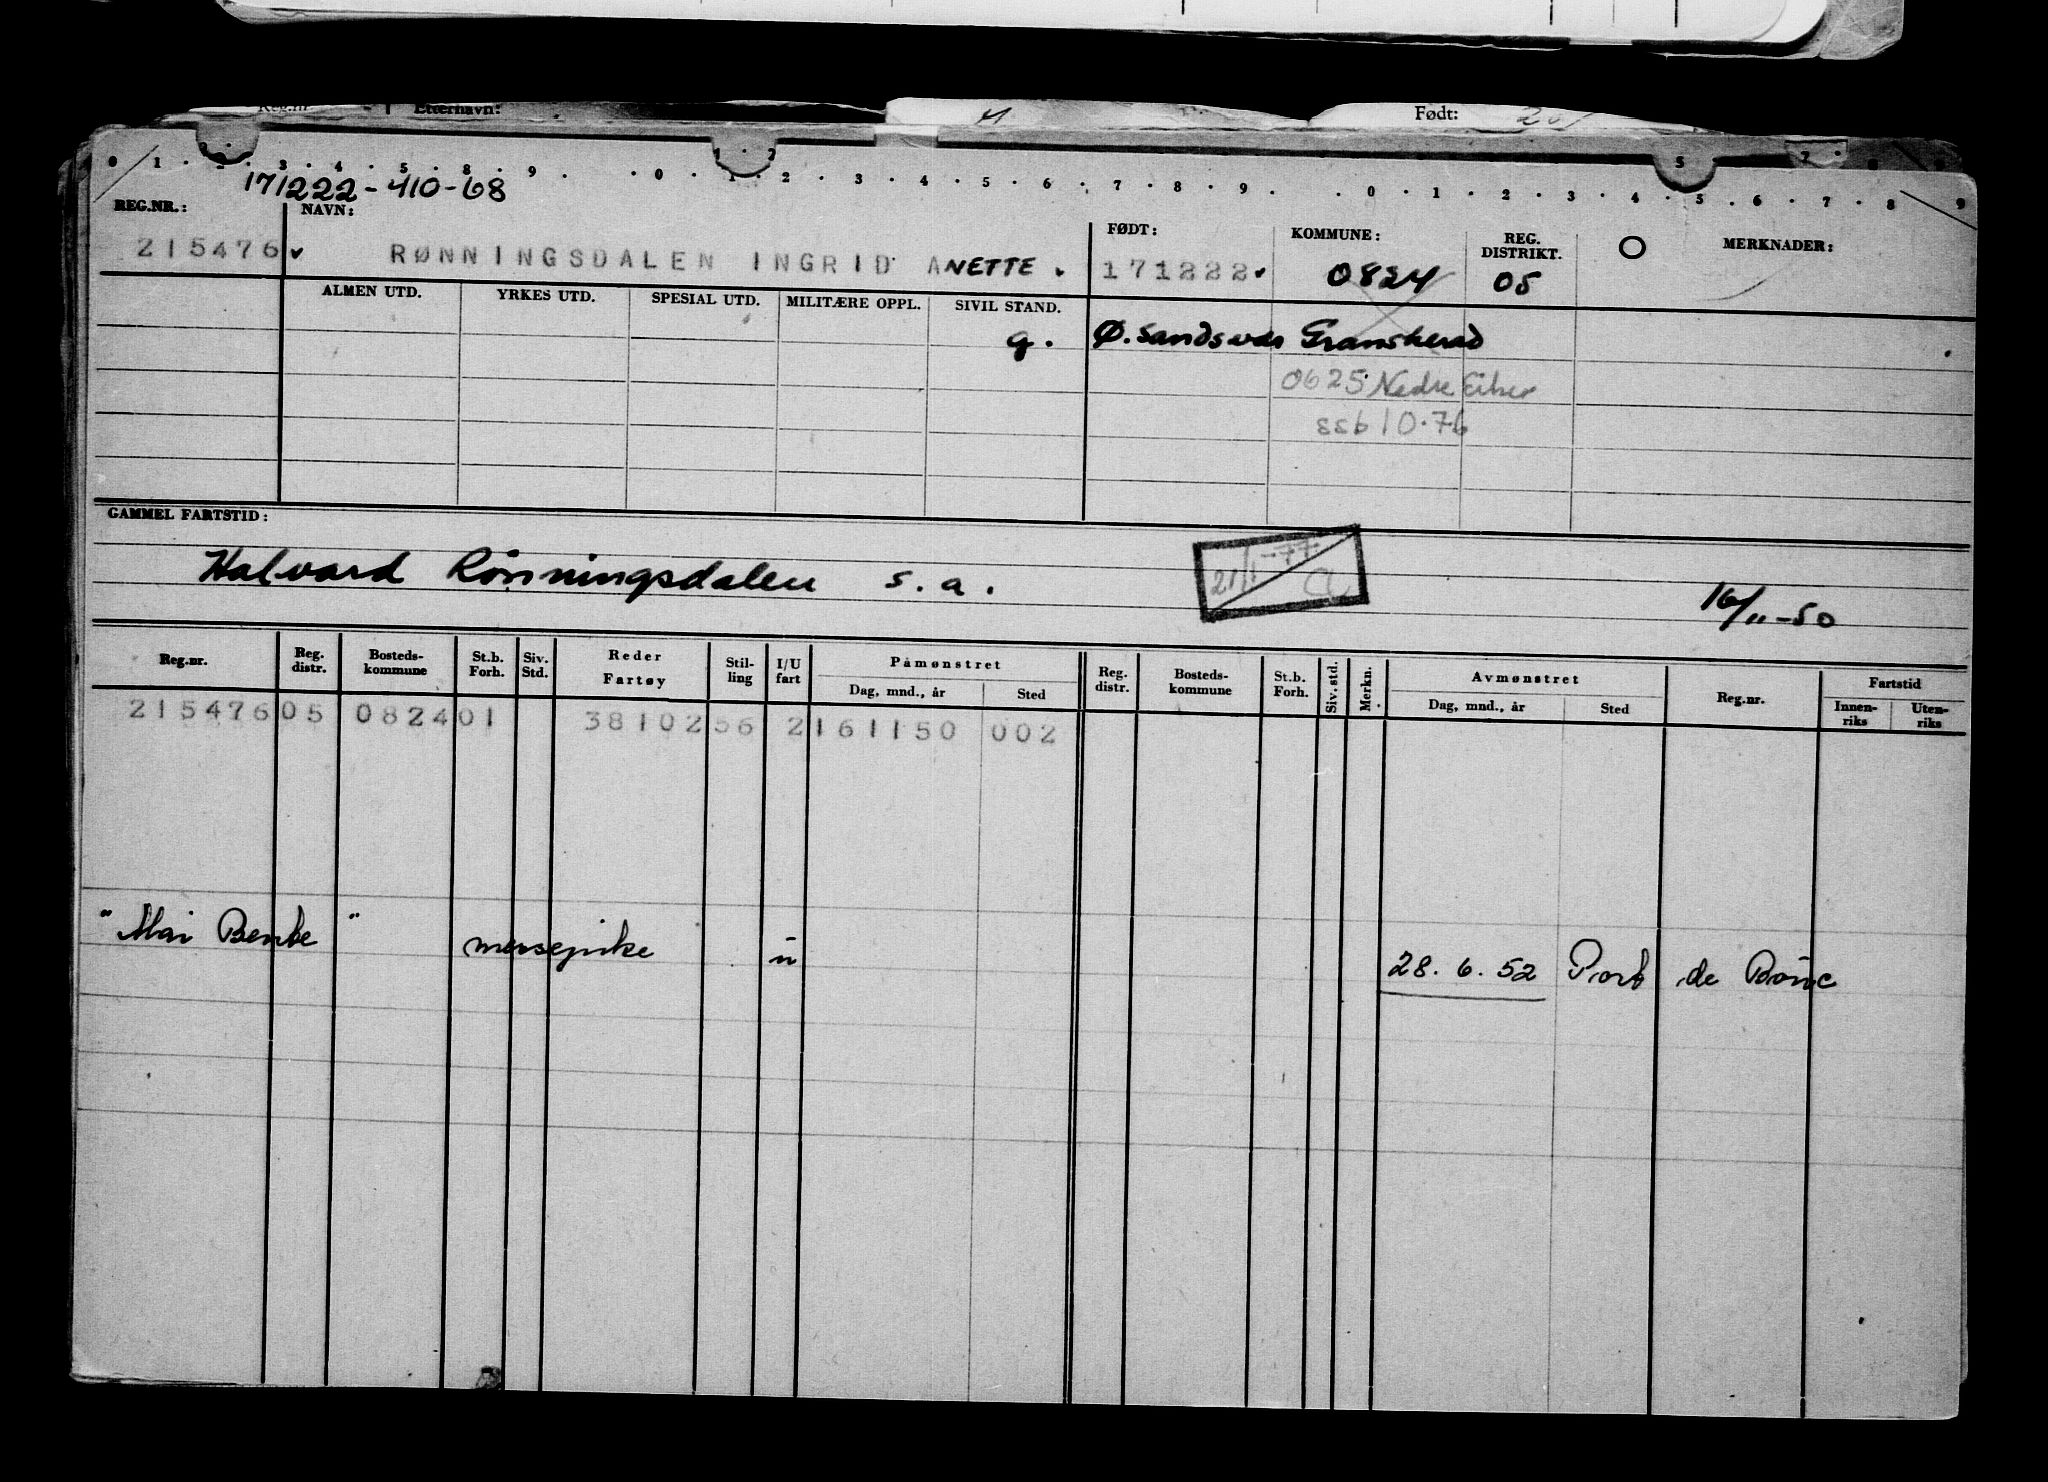 Reg.nr. Efternavn: Født:
0 1 2 3 4 5 8 9 0 1 2 3 4 5 6 7 8 9 0 1 2 3 4 5 6 7 8 9
171222-410-68
REG.NR.: NAVN: FØDT: KOMMUNE: REG. DISTRIKT. MERKNADER:
215476 RØNNINGSDALEN INGRID ANETTE. 171222 0824 05
ALMEN UTD. YRKES UTD. SPESIAL UTD. MILITÆRE OPPL. SIVIL STAND.
g. Ø. Sandsvær Gransherad
0625 Nedre Eiker
ssb 10.76
GAMMEL FARTSTID:
Halvard Rønningsdalen s.a. 21/1-77 16/11-50
Reg.nr. Reg. distr. Bosteds-kommune St.b. Forh. Siv. Std. Reder Fartøy Stil-ling I/U fart Påmønstret Dag, mnd., år Sted Reg. distr. Bosteds-kommune St.b. Forh. Siv. std. Merkn. Avmønstret Dag, mnd., år Sted Reg.nr. Fartstid Innen-riks Uten-riks
215476 05 0824 01 38102 56 2 161150 002
"Mai Bente" messepike u 28.6.52 Port de Bouc